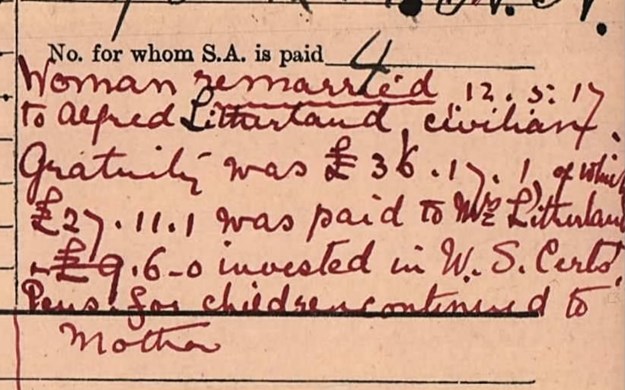 No. for whom S.A. is paid 4
Woman remarried 12.5.17
to Alfred Litherland, civilian.
Gratuity was £36.17.1, of which
£27.11.1 was paid to Mrs Litherland
£9.6-0 invested in W.S. Certs.
Pens. for children continued to
Mother